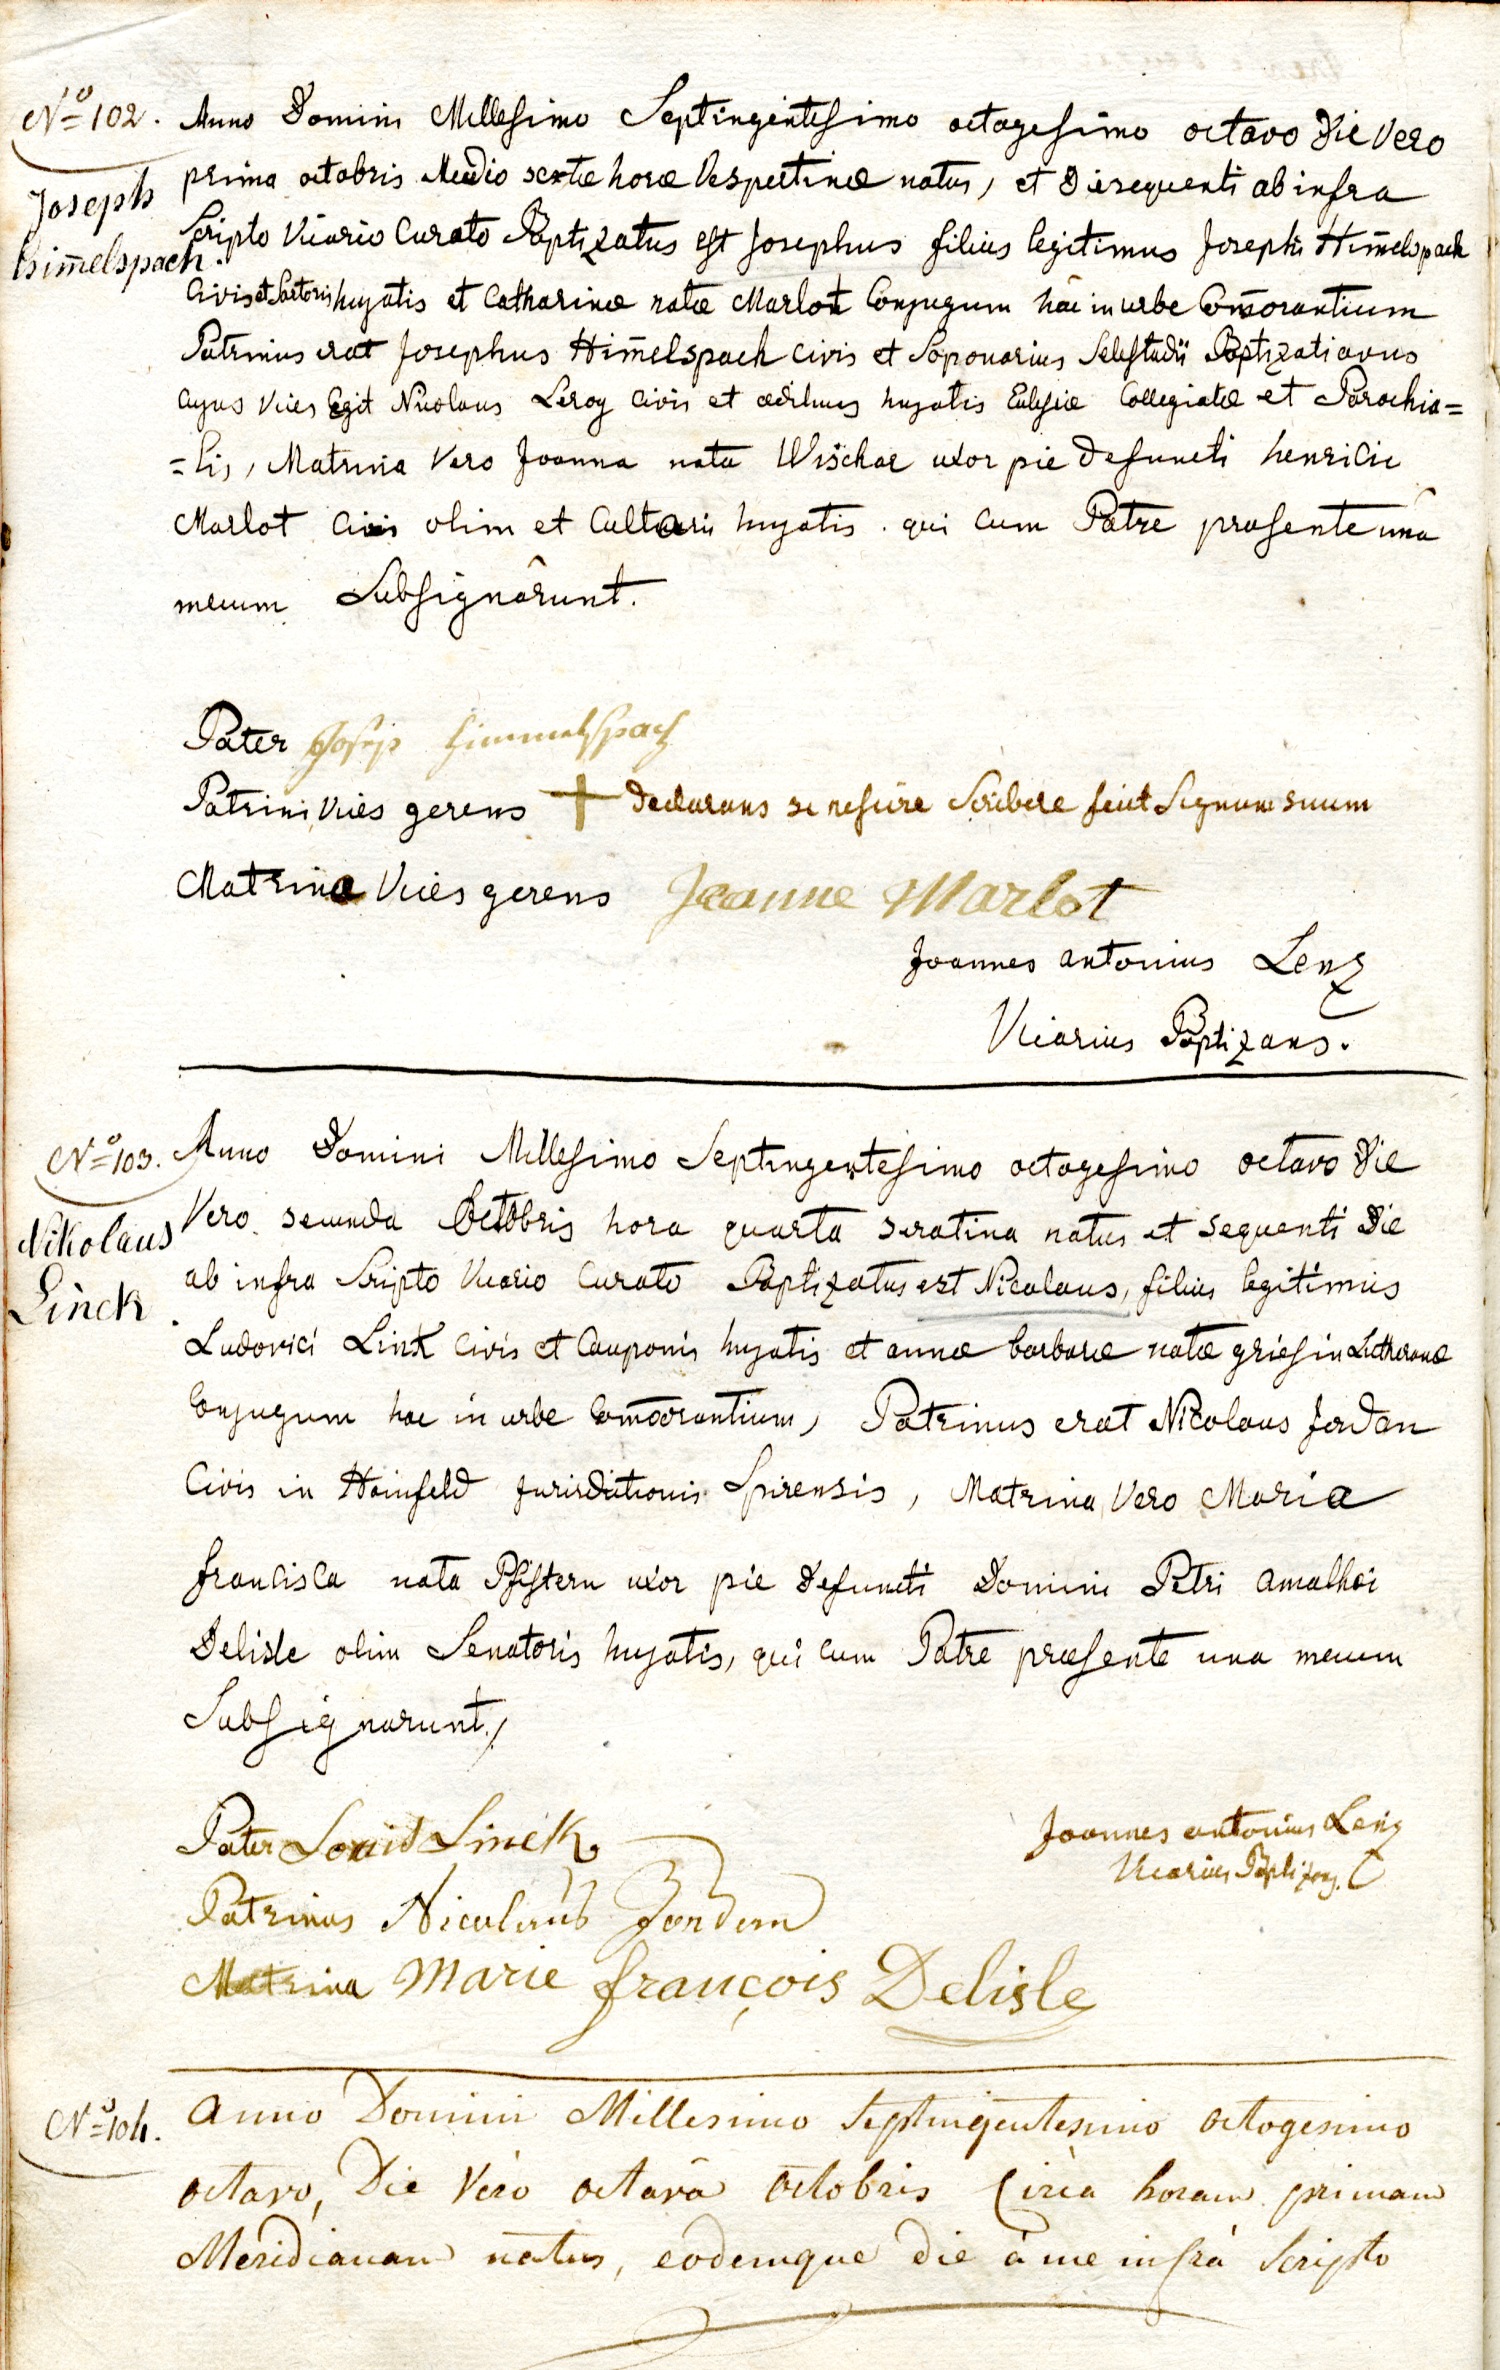 Nº=102.
Joseph
himelspach.
Anno Domini Millesimo Septingentesimo octogesimo octavo Die Vero
prima octobris Medio sextæ horæ Vespertinæ natus, et Die sequenti ab infra
Scripto Vicario Curato Baptizatus est Josephus filius legitimus Josephi Himelspach
Civis et Sartoris hujatis et Catharinæ natæ Marlot Conjugum hâc in urbe Comorantium
Patrinus erat Josephus Himelspach Civis et Saponarius Selestadii Baptizati avus
cujus Vices Egit Nicolaus Leroy Civis et ædituus hujatis Eclesiæ Collegiatæ et Parochia=
=lis, Matrina Vero Joanna nata Wischar uxor pie Defuncti henrici
Marlot Civis olim et Cultoris hujatis. qui Cum Patre præsente unâ
mecum Subsignârunt.
Pater Josep himmelspach
Patrini Vices gerens + Declarans se nescire Scribere fecit Signum suum
Matrinæ Vices gerens Jeanne Marlot
Joannes antonius Lenz
Vicarius Baptizans.
Nº=103.
Nikolaus
Linck.
Anno Domini Millesimo Septingentesimo octogesimo octavo Die
Vero secunda Octobris hora quarta seratina natus et sequenti Die
ab infra Scripto Vicario Curato Baptizatus est Nicolaus, filius legitimus
Ludovici Link Civis et Cauponis hujatis et annæ barbaræ natæ griesin Lutheranæ
Conjugum hac in urbe Comorantium, Patrinus erat Nicolaus Jordan
Civis in Hainfeld Jurisdictionis Spirensis, Matrina Vero Maria
francisca nata Pfistern uxor pie Defuncti Domini Petri amalhei
Delisle olim Senatoris hujatis, qui Cum Patre præsente una mecum
Subsignarunt,
Pater Louis Linck
Joannes antonius Lenz
Vicarius Baptizans.
Patrinus Nicolaus Jordan
Matrina Marie françois Delisle
Nº=104.
Anno Domini Millesimo Septingentesimo octogesimo
octavo, Die Vero octavâ octobris Circà horam primam
Meridianam natus, eodemque die à me infrà Scripto